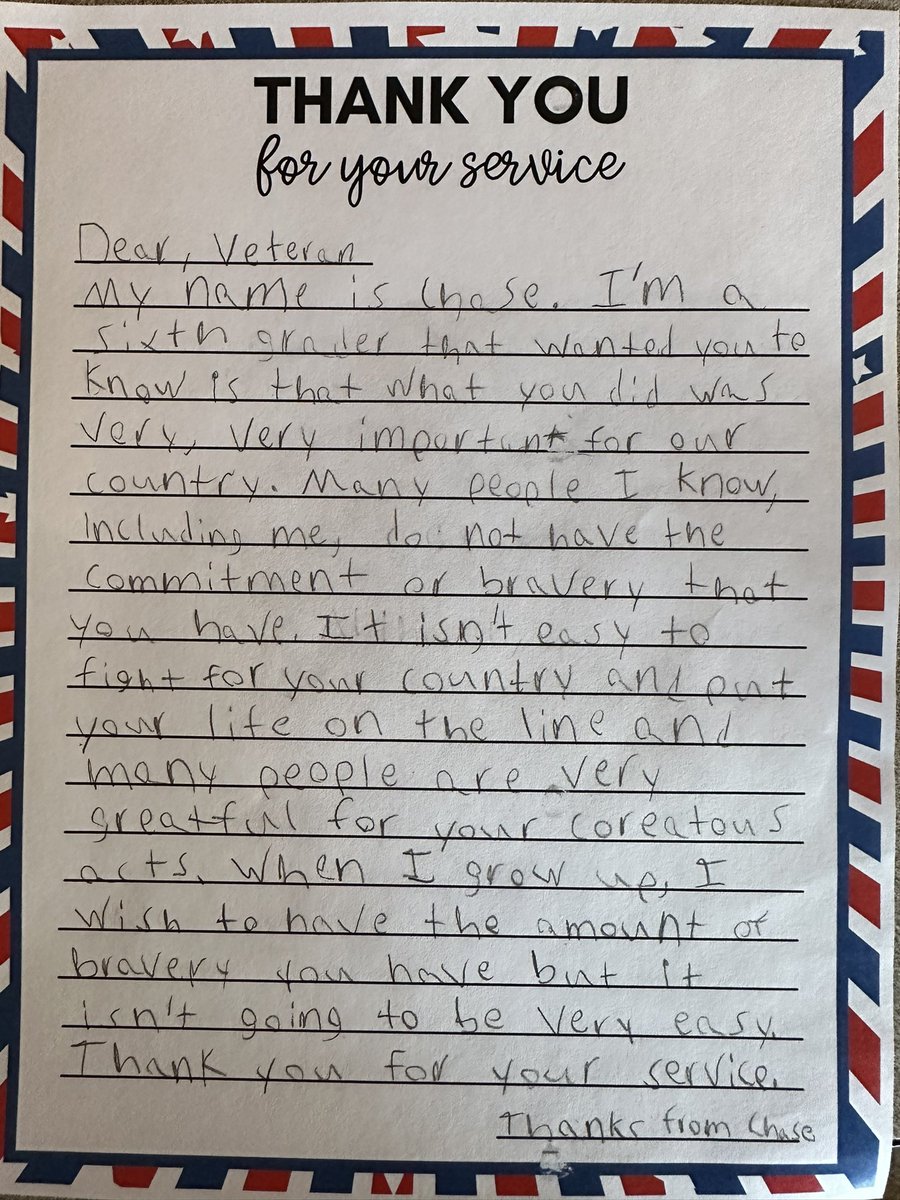 THANK YOU
for your service
Dear, Veteran
My name is Chase. I'm a
sixth grader that wanted you to
know is that what you did was
very, very important for our
country. Many people I know,
including me, do not have the
commitment or bravery that
you have. It isn't easy to
fight for your country and put
your life on the line and
many people are very
greatful for your coreatous
acts. When I grow up, I
wish to have the amount of
bravery you have but it
isn't going to be very easy.
Thank you for your service.
Thanks from Chase